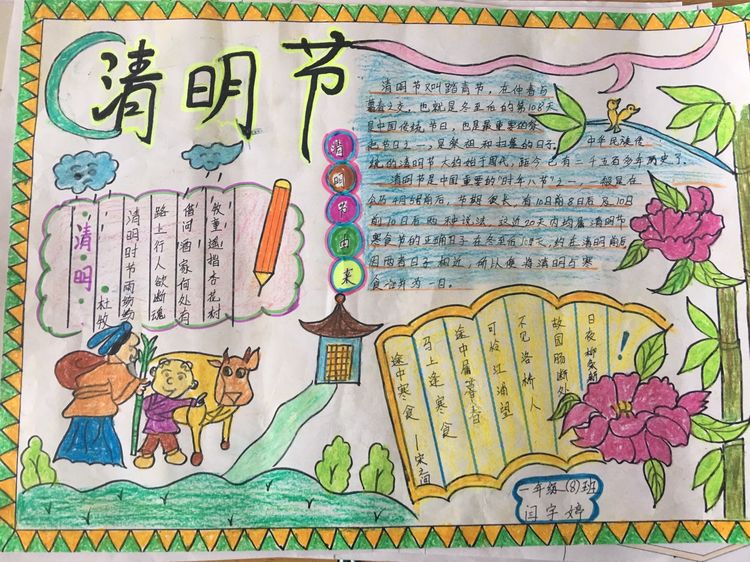 清明节
清明节由来
清明节又叫踏青节，在仲春与
暮春之交，也就是冬至后的第108天
是中国传统节日，也是最重要的祭
祀节日之一，是祭祖和扫墓的日子。中华民族传
统的清明节大约始于周代，距今已有二千五百多年历史了。
清明节是中国重要的"时年八节"之一，一般是在
公历4月5号前后，节期很长，有10日前8日后及10日
前10日后两种说法，这近20天内均属清明节
寒食节的正确日子在冬至后
因两者日子相近，所以便将清明与寒
食合并为一日。
清·明
·杜牧
清明时节雨纷纷
路上行人欲断魂
借问酒家何处有
牧童遥指杏花村
途中寒食
——宋之问
马上逢寒食
途中属暮春
可怜江浦望
不见洛桥人
故园肠断处
日夜柳条新
!
一年级(8)班
闫宇婷